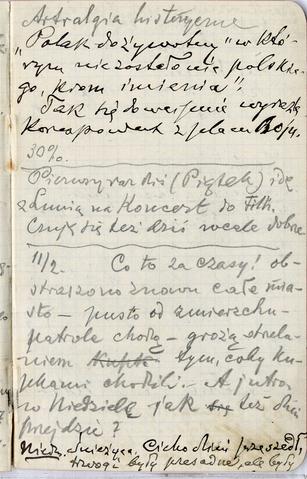 Artralgia histeryczne
„Polak dożywotny" w któ-
rym nie zostało nic polskie-
go, krom imienia".
Tak się dowcipnie wyraża
Korespondent z placu boju.
30%.
Pierwszy raz dziś (Piątek) idę
z Lunią na Koncert do Filh.
Czuję się też dziś wcale dobrze.
11/2. Co to za czasy! ob-
strzeżono znowu całe mia-
sto – pusto od zmierzchu –
patrole chodzą – grożą strzela-
niem tym, coby ku-
pkami chodzili. A jutro
w Niedzielę jak się też dzień
przejdzie?
Niedz. śnieżyca. Cicho dzień przeszedł,
trwogi były przesadne, ale były